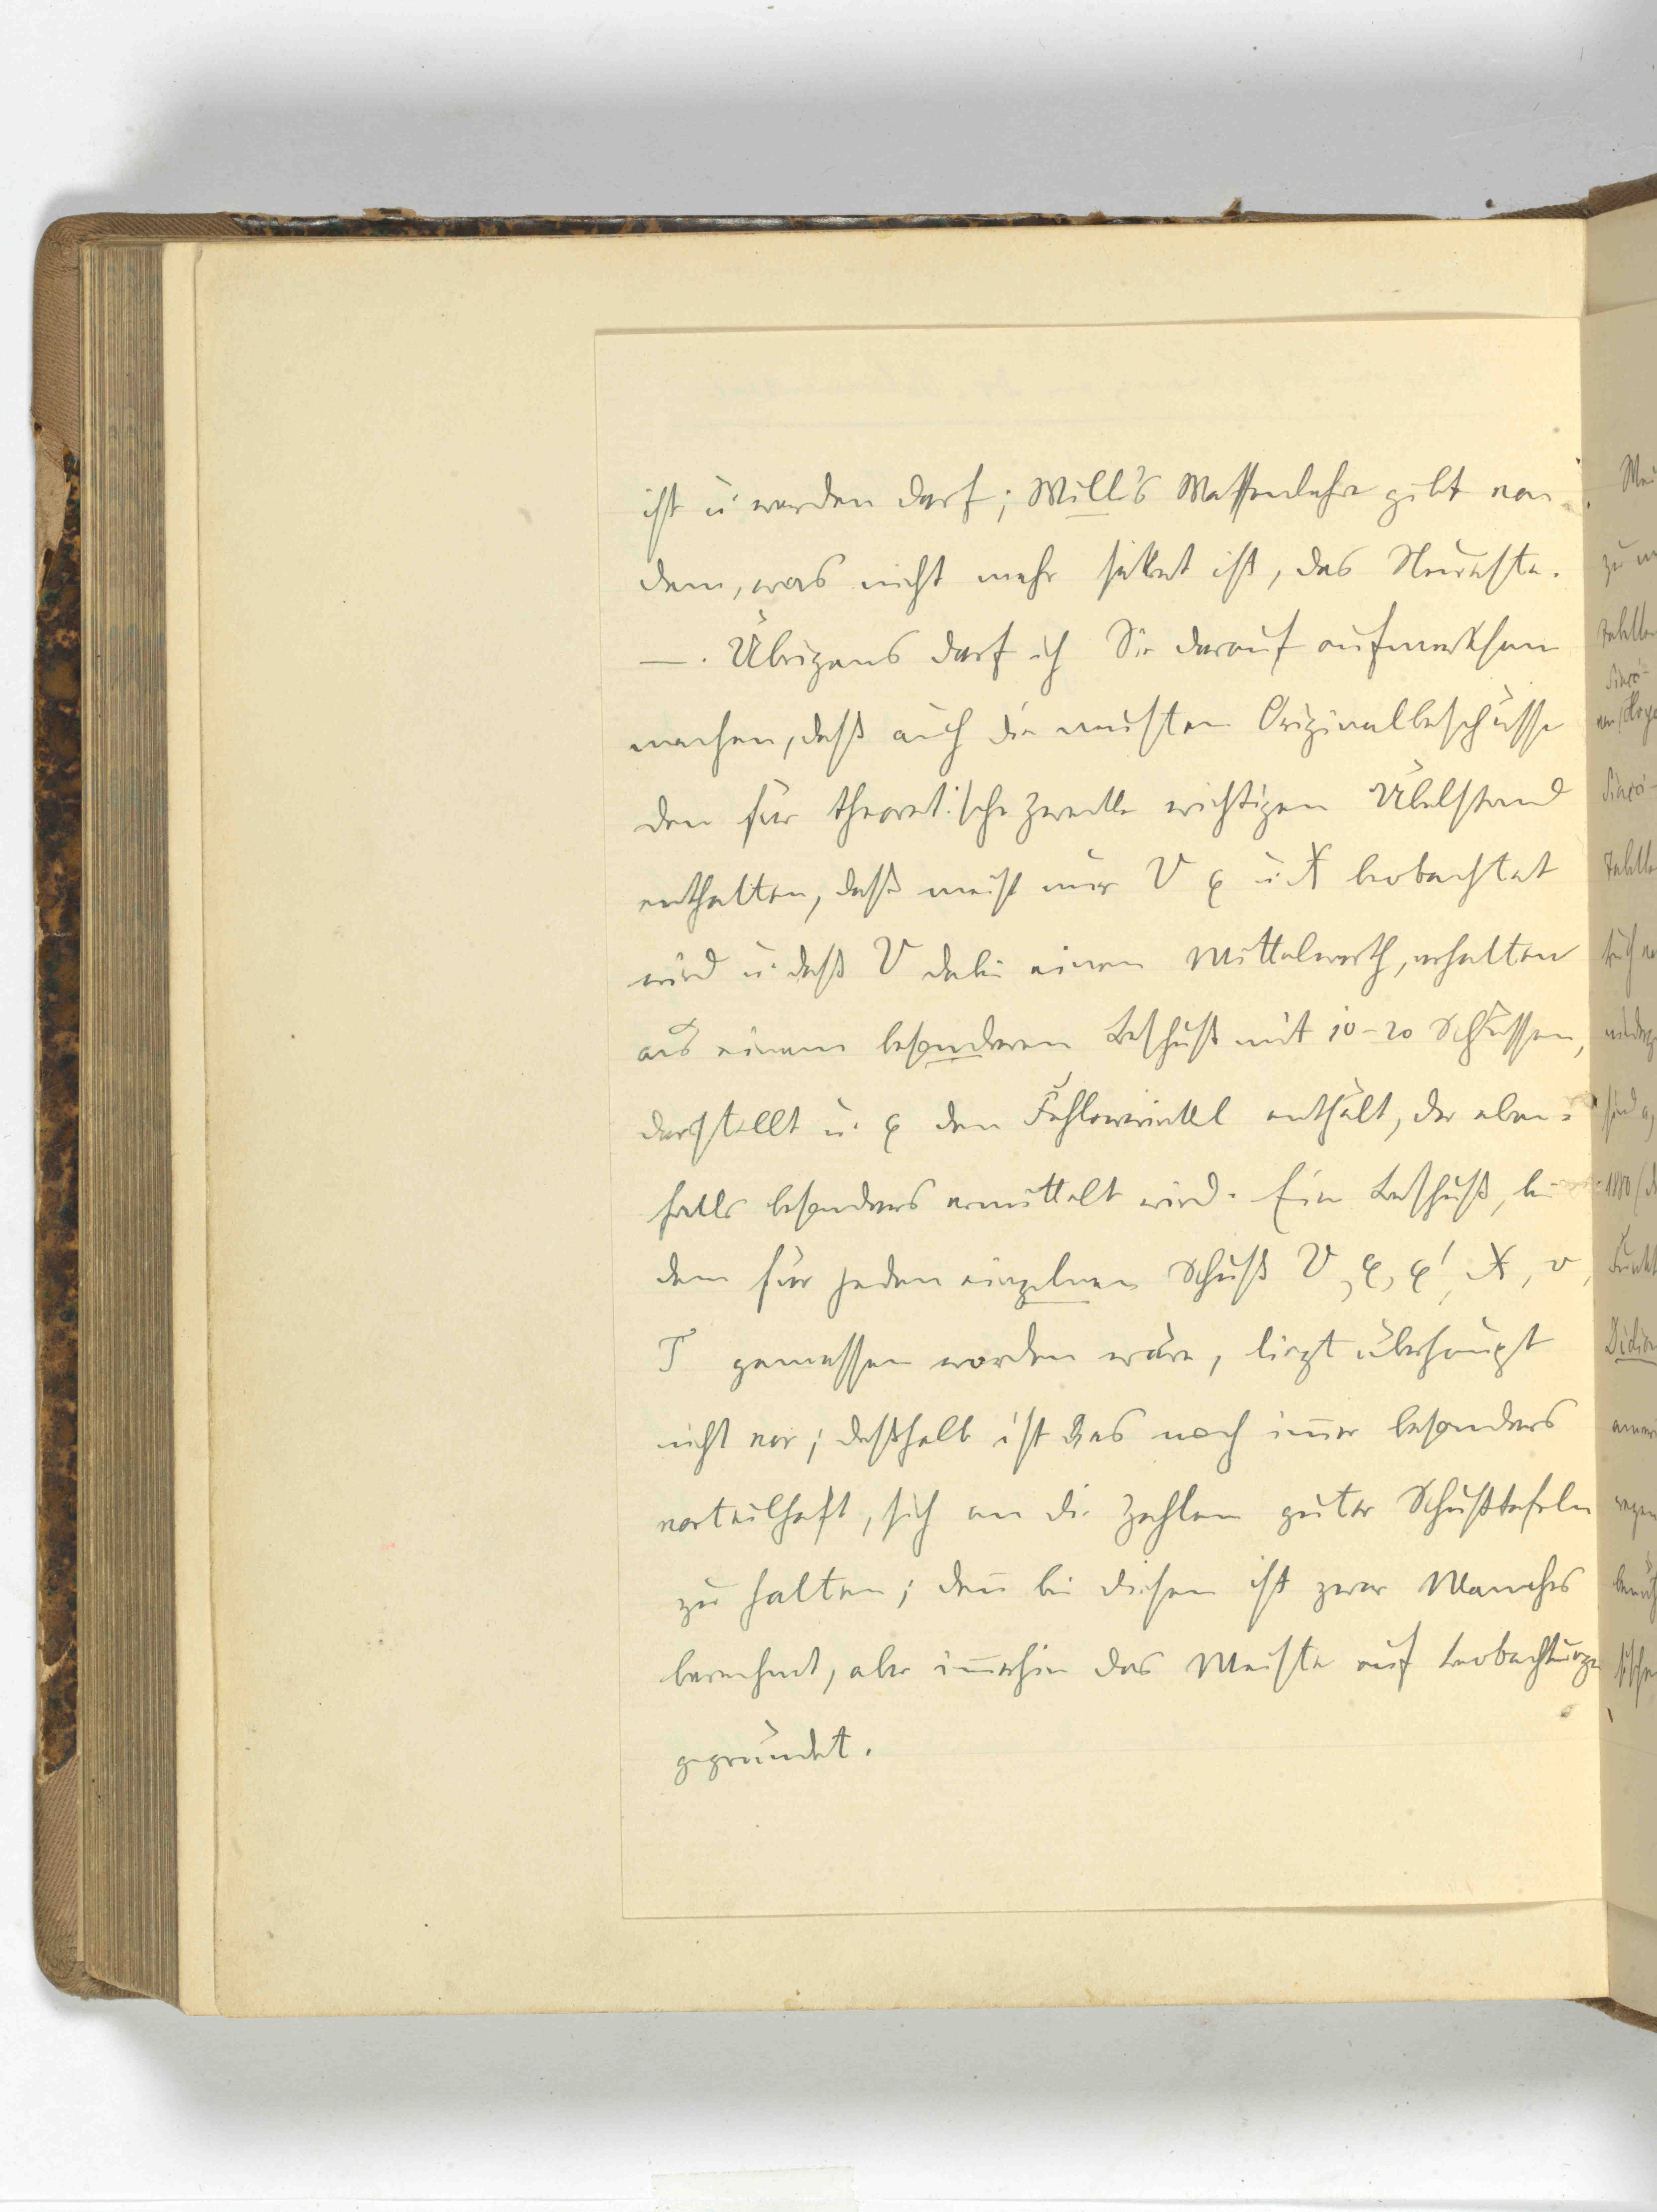 ist u. werden darf; Will's Waffenlehre gibt von
dem, was nicht mehr sekret ist, das Neueste.
—. Übrigens darf ich Sie darauf aufmerksam
machen, daß auch die meisten Originalbeschüsse
den für theoretische Zwecke wichtigen Übelstand
enthalten, daß meist nur V φ u. X beobachtet
wird u. daß V dabei einen Mittelwerth, erhalten
aus einem besonderen Beschuß mit 10-20 Schüssen,
darstellt u. φ den Fehlerwinkel enthält, der eben-
falls besonders ermittelt wird. Ein Beschuß, bei
dem für jeden einzelnen Schuß V, φ, φ', X, v,
T gemessen worden wäre, liegt überhaupt
nicht vor; deßhalb ist das noch im̄er besonders
vorteilhaft, sich an die Zahlen guter Schußtafeln
zu halten; den̄ bei diesen ist zwar Manches
berechnet, aber im̄erhin das Meiste auf Beobachtungen
gegründet.
zu
Didion